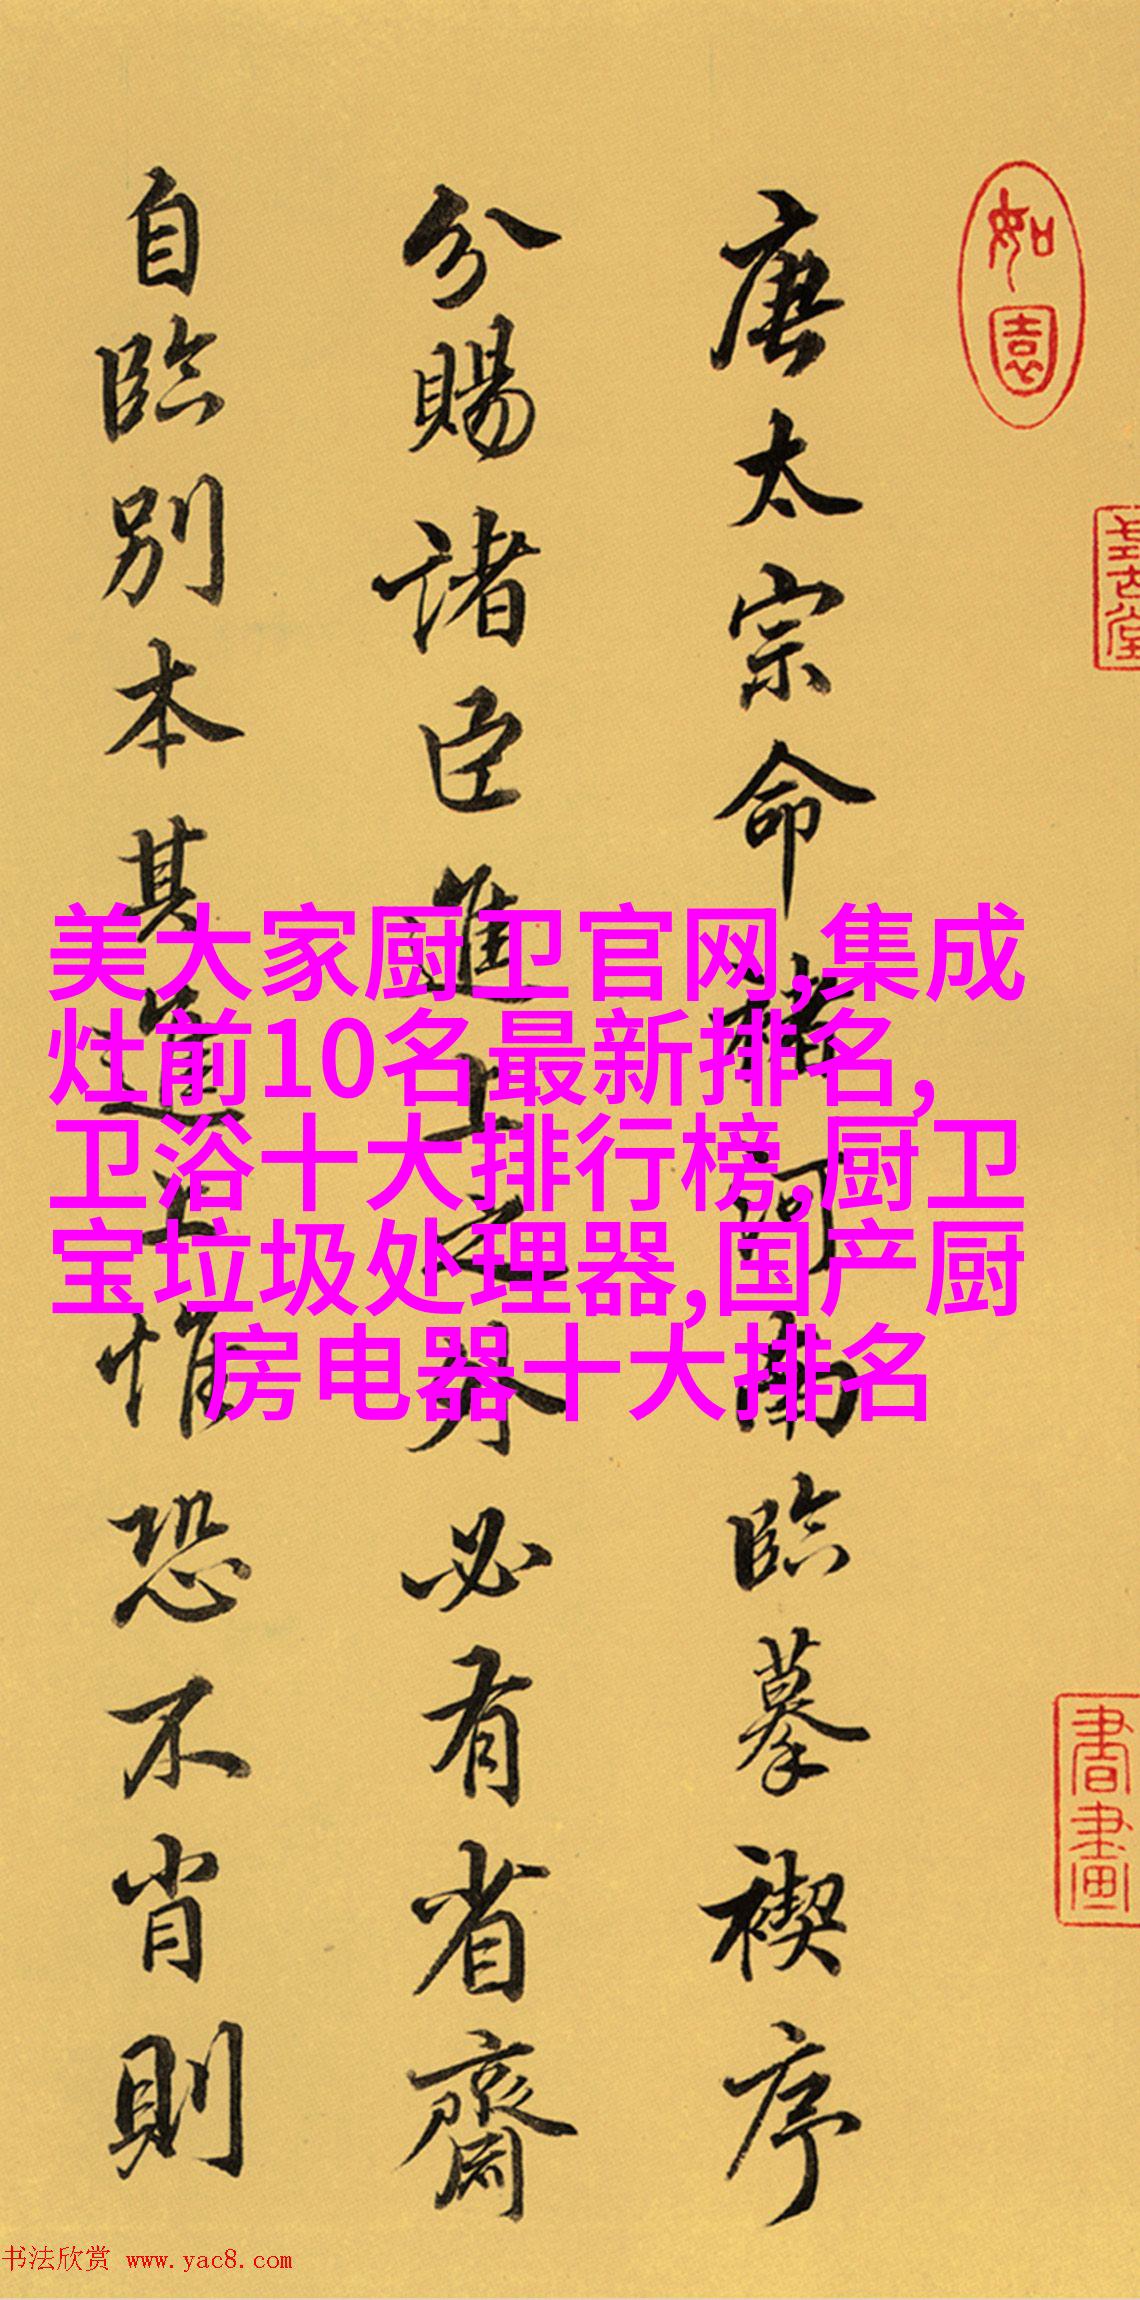 如園
唐太宗命褚河南臨摹禊序
分賜諸臣進上之外必有省齋
自臨別本其進上惟恐不肖則
美大家厨卫官网,集成
灶前10名最新排名,
卫浴十大排行榜,厨卫
宝垃圾处理器,国产厨
房电器十大排名
書畫
书法欣赏 www.yac8.com